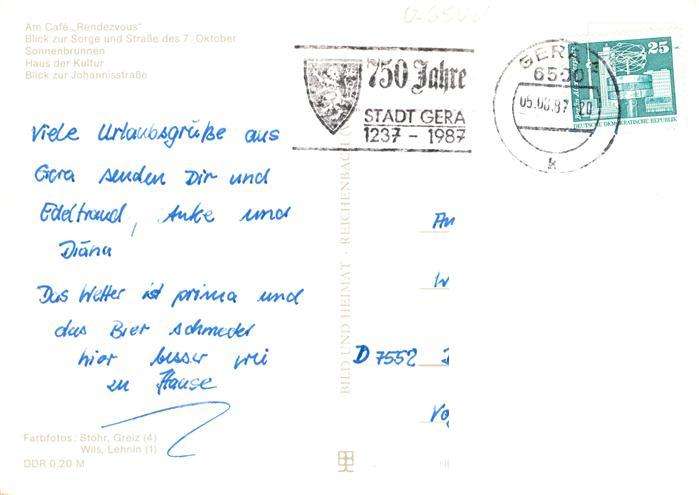 Am Café „Rendezvous"
Blick zur Sorge und Straße des 7. Oktober
Sonnenbrunnen
Haus der Kultur
Blick zur Johannisstraße
750 Jahre
STADT GERA
1237 - 1987
GERA
6500
05.08.87
k
25
DEUTSCHE DEMOKRATISCHE REPUBLIK
Viele Urlaubsgrüße aus
Gera senden Dir und
Edeltraud, Anke und
Diana
Das Wetter ist prima und
das Bier schmeckt
hier besser wie
zu Hause
An
D 7552
BILD UND HEIMAT · REICHENBACH
Farbfotos: Stöhr, Greiz (4)
Wils, Lehnin (1)
DDR 0,20 M